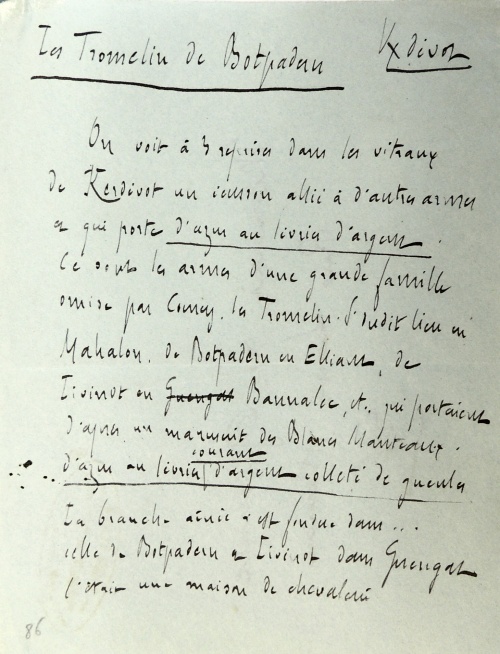 Les Tromelin de Botpadern K/divot
On voit à 3 reprises dans les vitraux
de Kerdivot un écusson allié à d'autres armes
et qui porte d'azur au lévrier d'argent.
Ce sont les armes d'une grande famille
omise par Courcy, les Tromelin. S. dudit lieu en
Mahalon, de Botpadern en Elliant, de
Livinot en Guengat Bannalec, etc, qui portaient
d'après un manuscrit des Blancs Manteaux.
courant
d'azur au lévrier d'argent colleté de gueules
La branche aînée s'est fondue dans ...
celle de Botpadern et Livinot dans Guengat
C'était une maison de chevalerie
86